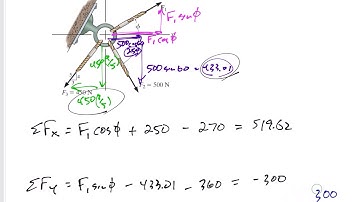 F₁ sinϕ
F₁ cosϕ
500 sin60 = 433.01
F₃ = 450 N
F₂ = 500 N
ΣFx = F₁ cosϕ + 250 - 270 = 519.62
ΣFy = F₁ sinϕ - 433.01 - 360 = -300
300